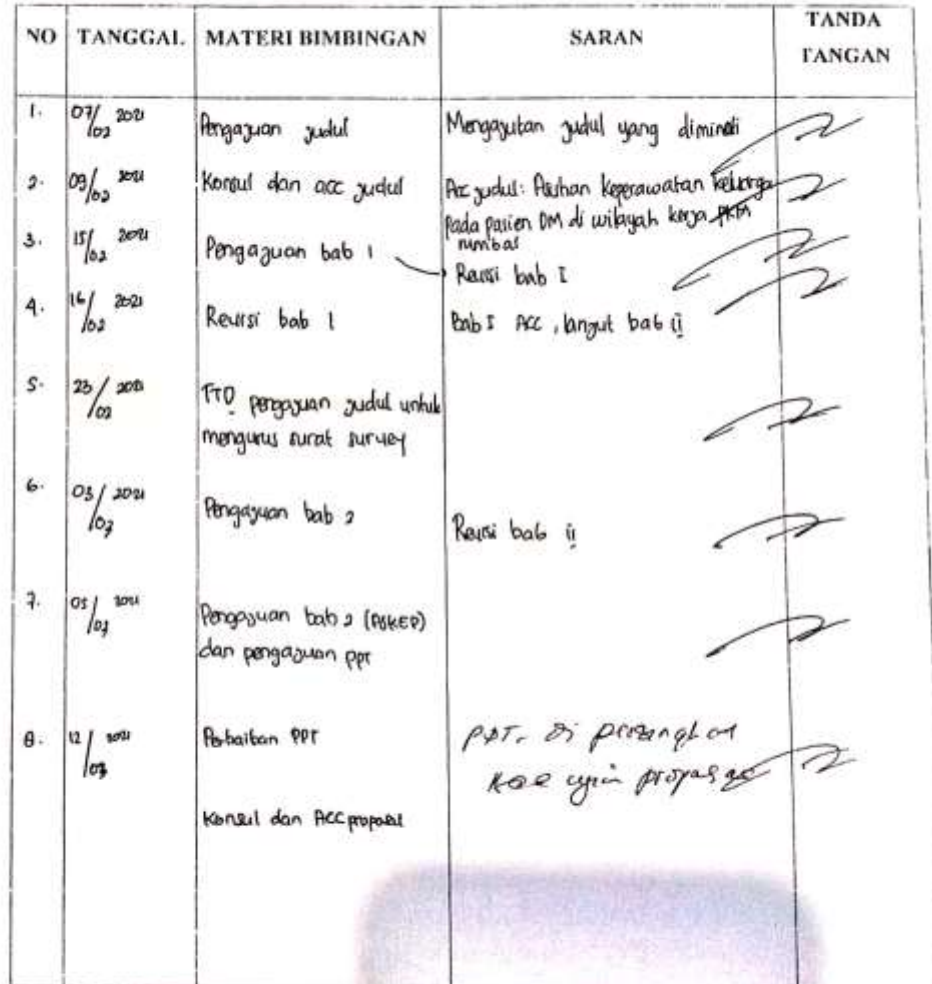 NO TANGGAL MATERI BIMBINGAN SARAN TANDA TANGAN
1. 07/02 2021 Pengajuan judul Mengajukan judul yang diminati
2. 09/02 2021 Konsul dan acc judul Acc judul: Asuhan Keperawatan keluarga
pada pasien DM di wilayah kerja PKM
rumbai
3. 15/02 2021 Pengajuan bab 1 Revisi bab I
4. 16/02 2021 Revisi bab 1 Bab I ACC, lanjut bab ii
5. 23/02 2021 TTD pengajuan judul untuk
mengurus surat survey
6. 03/03 2021 Pengajuan bab 2 Revisi bab ii
7. 05/03 2021 Pengajuan bab 2 (ASKEP)
dan pengajuan ppt
8. 12/03 2021 Perbaikan PPT PPT. Di
ujian proposal
Konsul dan ACC proposal